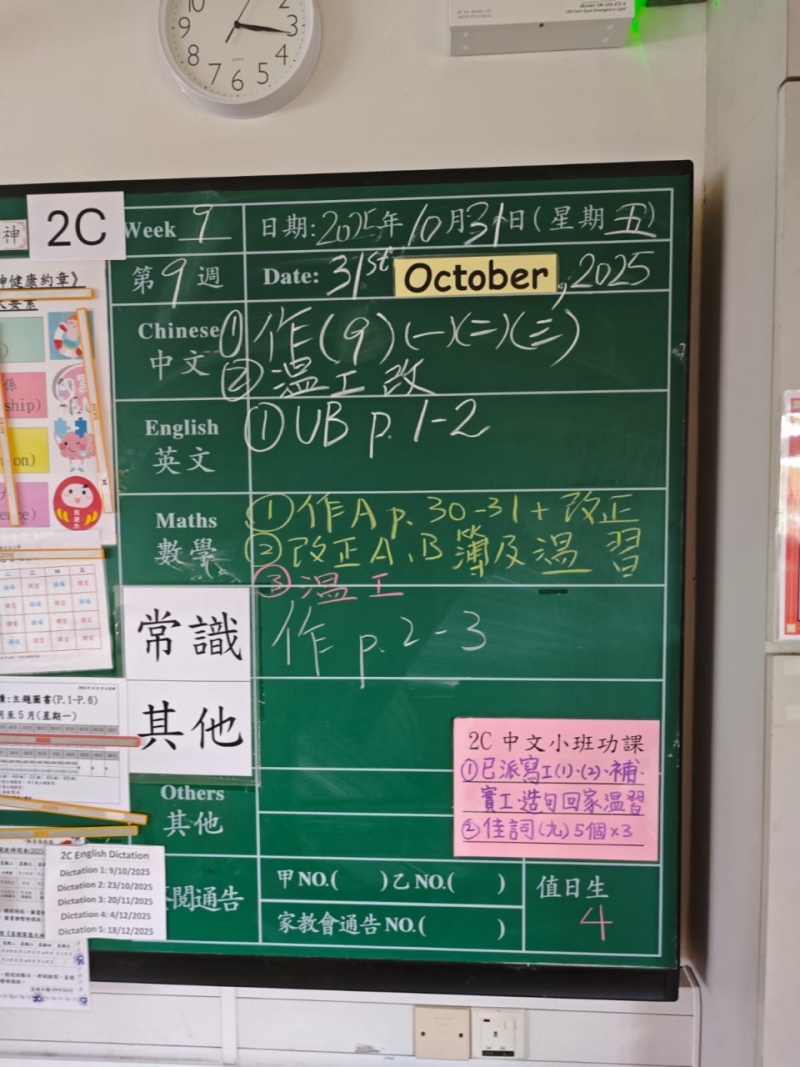 10
2
3
4
5
6
7
8
神
2C
Week 9
日期:2025年10月31日(星期五)
第9週
Date: 31st October, 2025
Chinese
中文
①作(9)(一)(二)(三)
②溫工改
English
英文
①UB p.1-2
Maths
數學
①作A p. 30-31+改正
②改正A、B簿及溫習
③溫工
常識
作 p.2-3
其他
Others
其他
2C 中文小班功課
①已派寫工(1)、(2)、補、
實工、造句回家溫習
②佳詞(九)5個×3
閱通告
甲NO.( )乙NO.( )
家教會通告NO.( )
值日生
4
神健康約章》
係
ship)
on)
ence)
二 三 四 五
:主題圖書(P.1-P.6)
月至5月(星期一)
2C English Dictation
Dictation 1: 9/10/2025
Dictation 2: 23/10/2025
Dictation 3: 20/11/2025
Dictation 4: 4/12/2025
Dictation 5: 18/12/2025